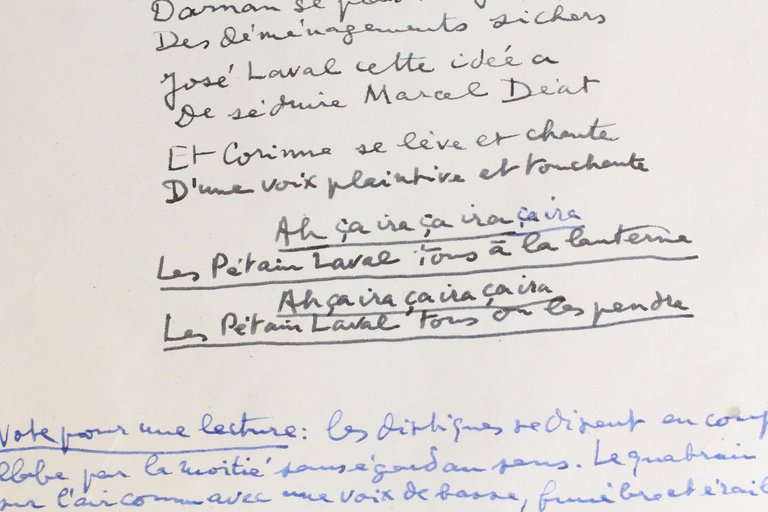 Darnan se
Des déménagements si chers
José Laval cette idée a
De séduire Marcel Déat
Et Corinne se lève et chante
D'une voix plaintive et touchante
Ah ça ira ça ira ça ira
Les Pétain Laval Tous à la lanterne
Ah ça ira ça ira ça ira
Les Pétain Laval Tous on les pendra
Note pour une lecture : les distiques se disent en coup
llabe par la moitié sans égard au sens. Le quatrain
sur l'air connu avec une voix de basse, funèbre et érail